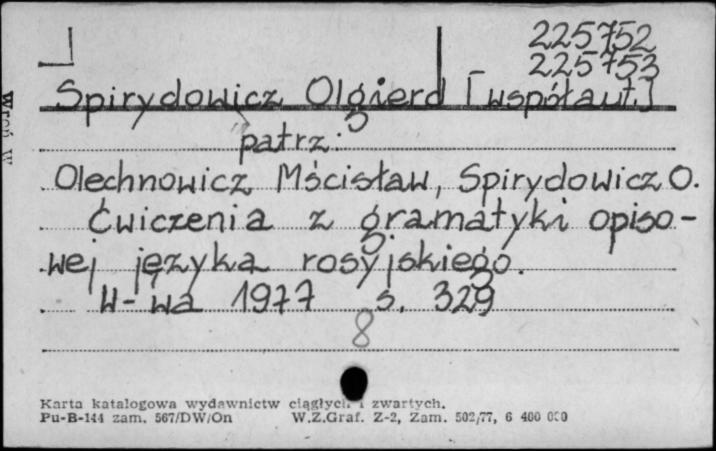 225752
225753
Spirydowicz Olgierd [współaut.]
patrz:
Olechnowicz Mścisław, Spirydowicz O.
Ćwiczenia z gramatyki opiso-
wej języka rosyjskiego.
W-wa 1977 s. 329
8
Karta katalogowa wydawnictw ciągłych i zwartych.
Pu-B-144 zam. 567/DW/On W.Z.Graf. Z-2, Zam. 502/77, 6 400 000